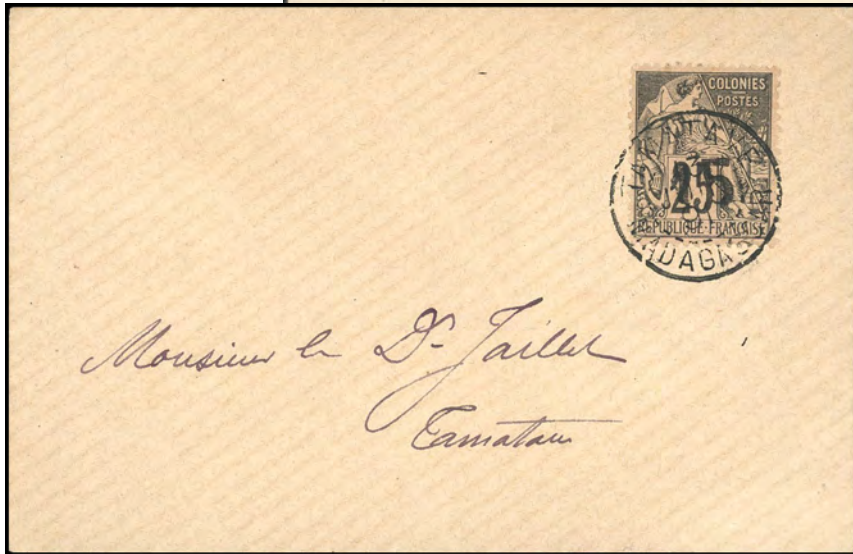 COLONIES
POSTES
25
RÉPUBLIQUE FRANÇAISE
MADAGASCAR
Monsieur le Dr Jaillet
Tamatave